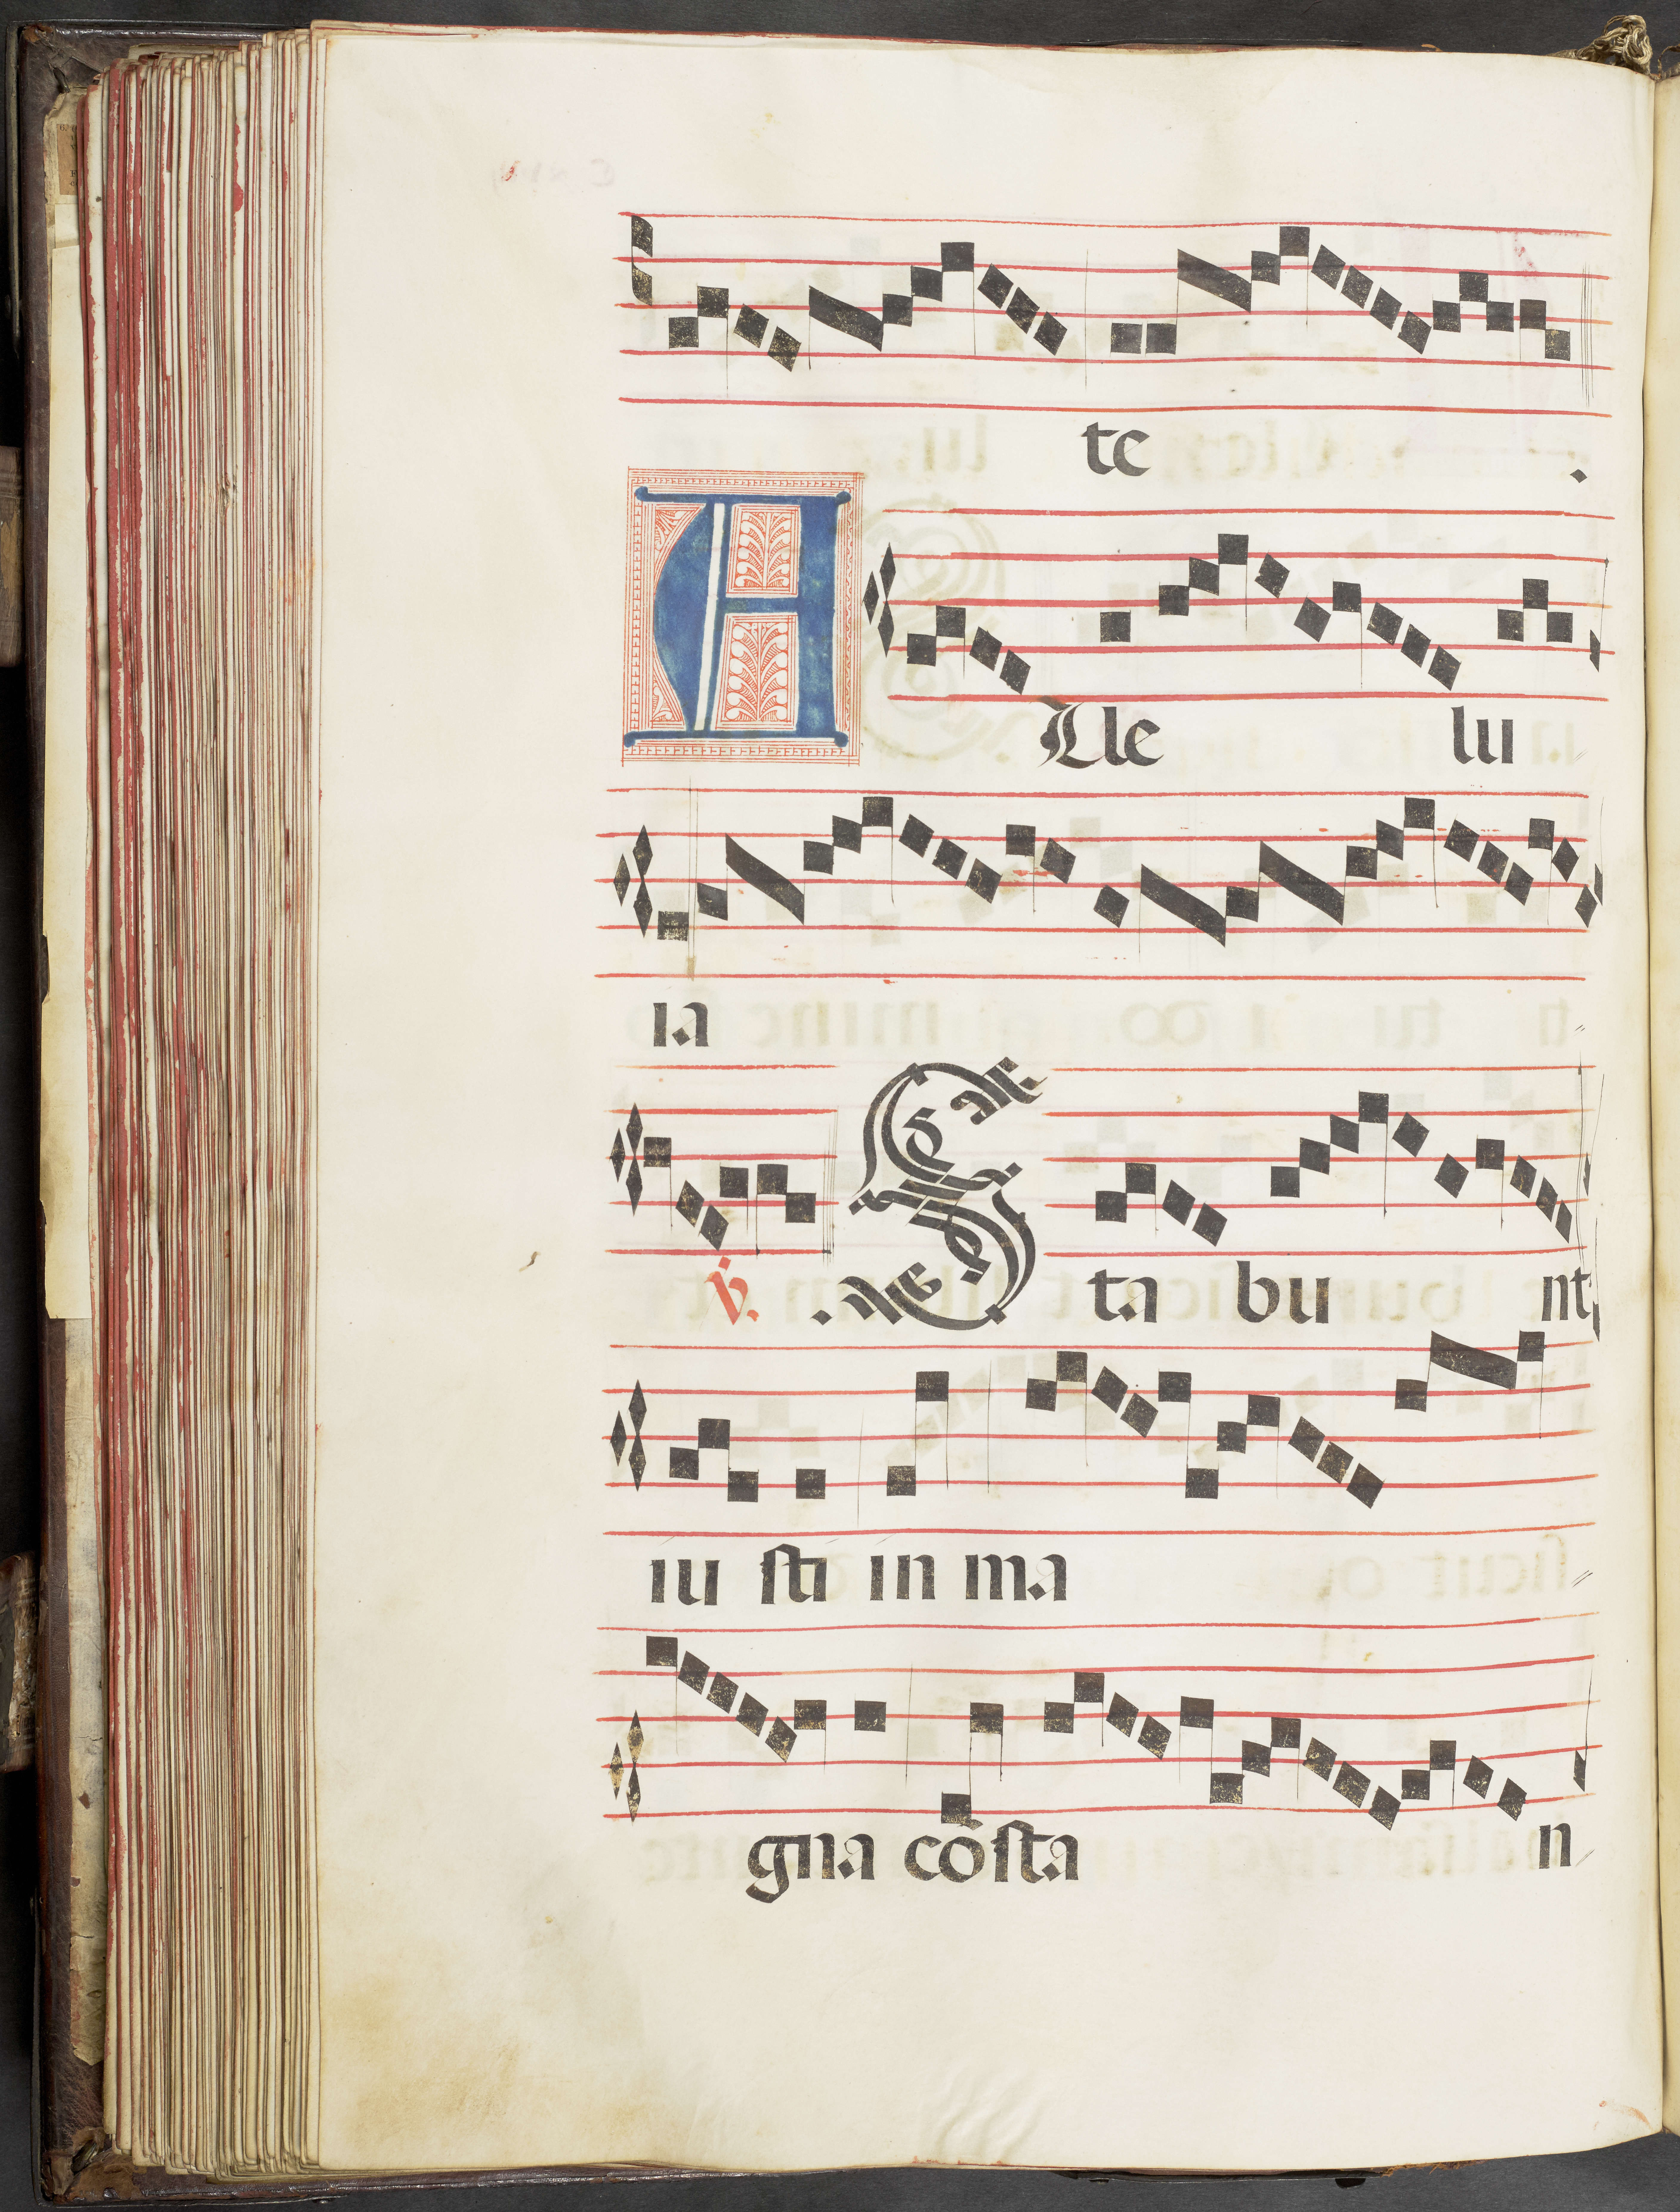 te .
A Lle lu
ia
v. S ta bu nt
iu sti in ma
gna cõsta n